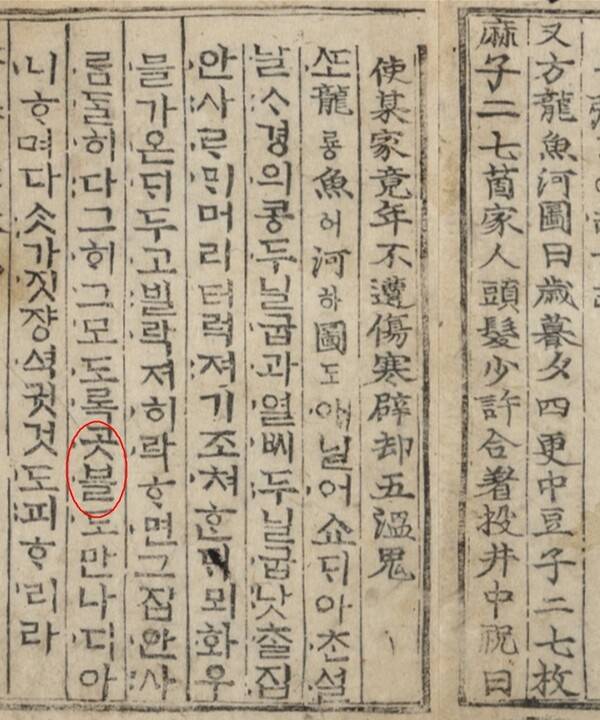 又方龍魚河圖曰歲暮夕四更中豆子二七枚
麻子二七箇家人頭髮少許合著投井中祝曰
使某家竟年不遭傷寒辟却五溫鬼
ᄯᅩ龍룡魚어河하圖도애닐어쇼ᄃᆡ아ᄎᆞᆫ설
날ᄉᆞ경의콩두닐굽과열ᄡᅵ두닐굽낫ᄎᆞᆯ집
안사ᄅᆞᄆᆡ머리터럭져기조쳐ᄒᆞᆫᄃᆡ뫼화우
믈가온ᄃᆡ두고빌락져히락ᄒᆞ면그집안사
ᄅᆞᆷᄃᆞᆯ히다그ᄒᆡ그모도록곳블도만나디아
니ᄒᆞ며다ᄉᆞᆺ가짓쟝셕귓것도피ᄒᆞ리라